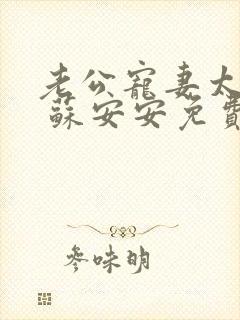 老公寵妻太
蘇安安免費
參味明